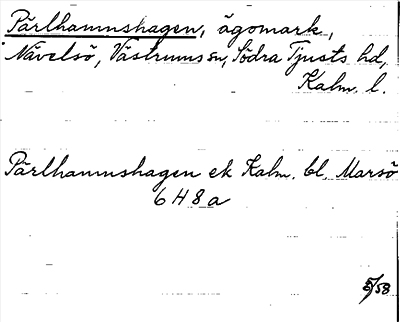 Pärlhamnshagen, ägomark,
Nävelsö, Västrums sn, Södra Tjusts hd,
Kalm. l.
Pärlhamnshagen ek Kalm. bl. Marsö
6 H 8 a
5/58